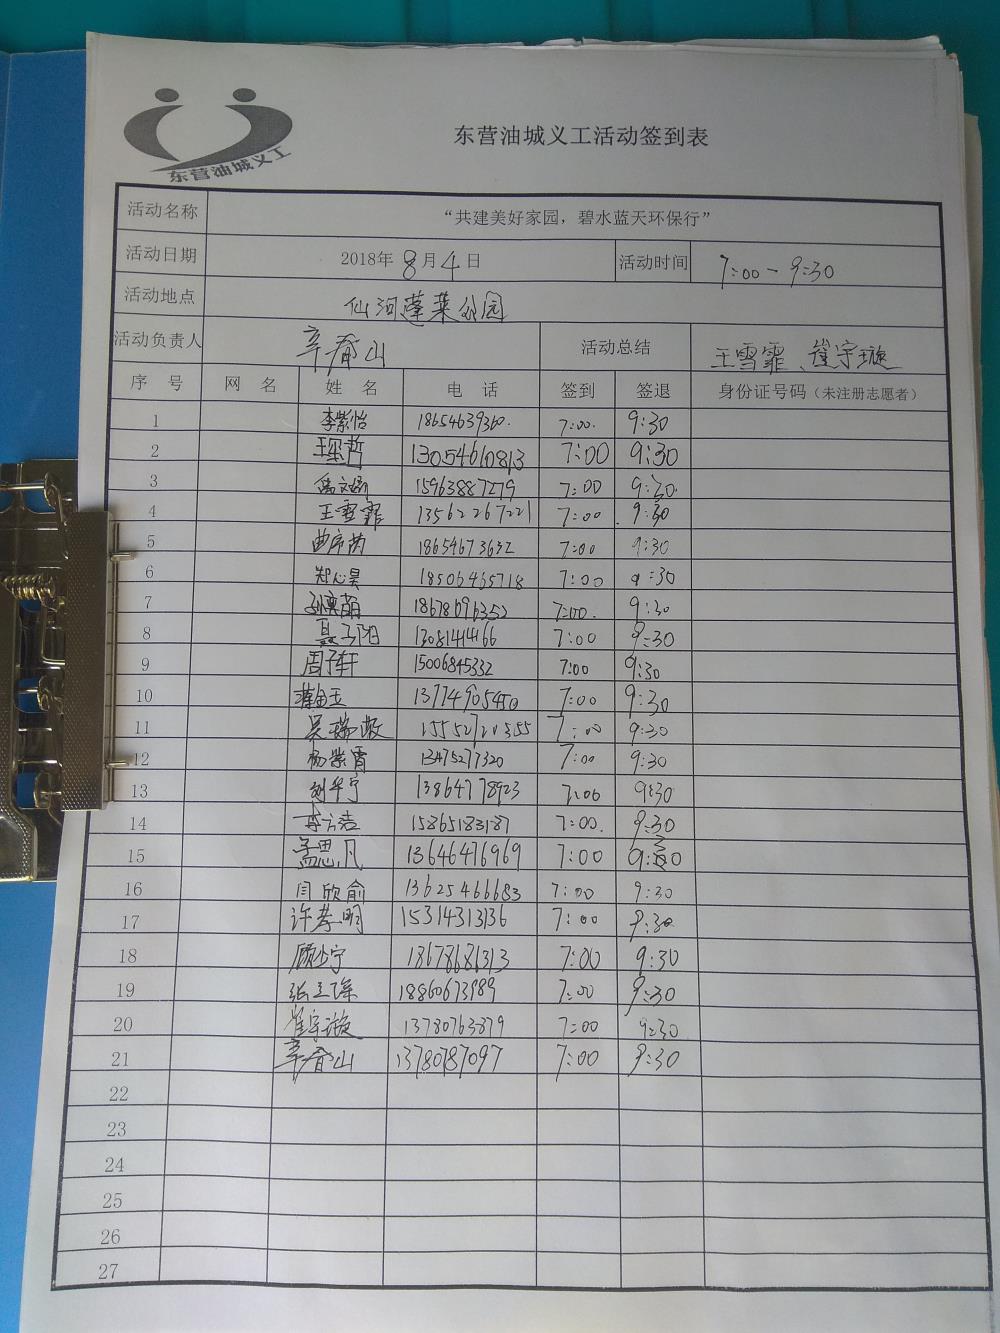 东营油城义工
东营油城义工活动签到表
活动名称 “共建美好家园，碧水蓝天环保行”
活动日期 2018年8月4日 活动时间 7:00-9:30
活动地点 仙河蓬莱公园
活动负责人 辛春山 活动总结 王雪霏、崔宇璇
序号 网名 姓名 电话 签到 签退 身份证号码（未注册志愿者）
1 李紫怡 18654639360. 7:00. 9:30
2 13054610813 7:00 9:30
3 15963887279 7:00 9:30
4 王雪霏 13562267221 7:00 9:30
5 18654673632 7:00 9:30
6 郑心昊 18506465718 7:00 9:30
7 18678696352 7:00. 9:30
8 聂子阳 13081414166 7:00 9:30
9 周子轩 15006845332 7:00 9:30
10 13774905450 7:00 9:30
11 7:00 9:30
12 杨紫霄 13475277320 7:00 9:30
13 刘华宁 13864778923 7:00 9:30
14 15865183187 7:00. 9:30
15 孟思凡 13646476969 7:00 9:30
16 闫欣俞 13625466683 7:00 9:30
17 许孝明 15314313136 7:00 9:30
18 顾少宁 18678686313 7:00 9:30
19 18860673989 7:00 9:30
20 崔宇璇 13780763879 7:00 9:30
21 辛春山 13780787097 7:00 9:30
22
23
24
25
26
27